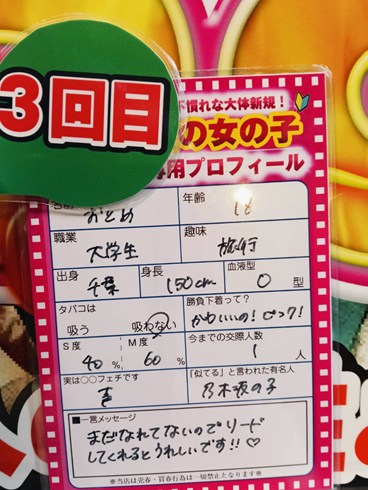 3回目
不慣れな大体新規!
の女の子
専用プロフィール
おとめ
年齢
18
職業
大学生
趣味
旅行
出身
千葉
身長
150cm
血液型
O 型
タバコは
吸う 吸わない
勝負下着って?
かわいいの!ピンク!
S度
40 %
M度
60 %
今までの交際人数
1 人
実は○○フェチです
「似てる」と言われた有名人
乃木坂の子
■一言メッセージ
まだなれてないのでリード
してくれるとうれしいです!!♡
※当店は売春・買春行為は一切禁止となります※